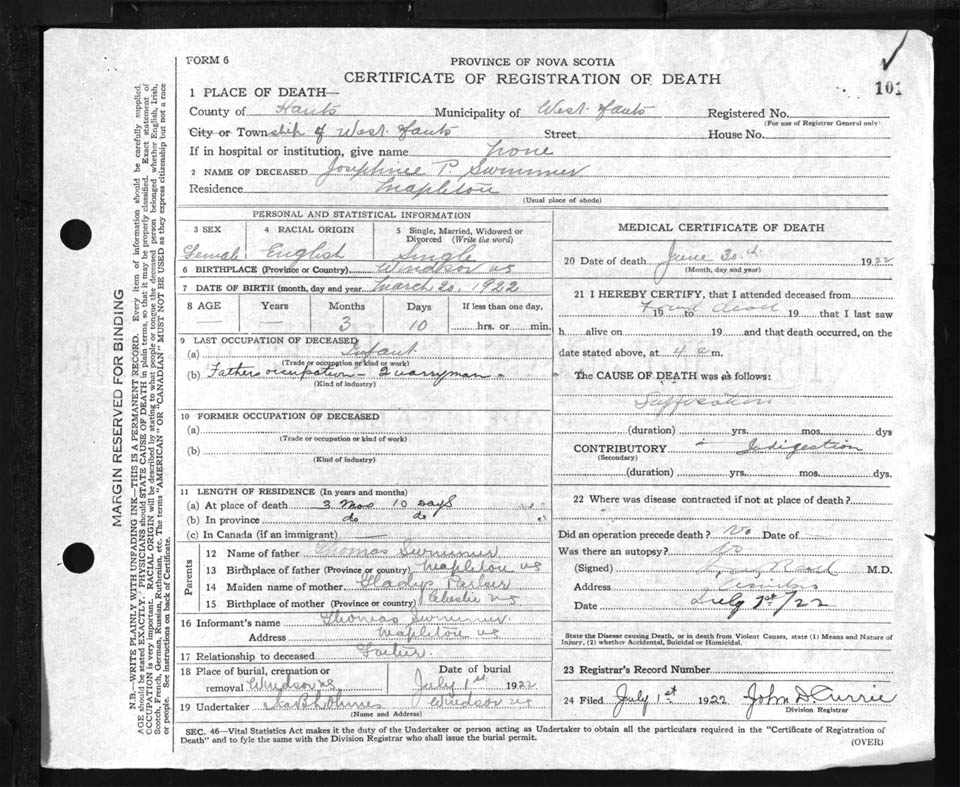 FORM 6
PROVINCE OF NOVA SCOTIA
CERTIFICATE OF REGISTRATION OF DEATH
101
1 PLACE OF DEATH—
County of Hants Municipality of West Hants Registered No.
(For use of Registrar General only)
City or Township of West Hants Street House No.
If in hospital or institution, give name none
2 NAME OF DECEASED P. Swimmer
Residence Mapleton
(Usual place of abode)
PERSONAL AND STATISTICAL INFORMATION
3 SEX 4 RACIAL ORIGIN 5 Single, Married, Widowed or Divorced (Write the word)
Female English Single
6 BIRTHPLACE (Province or Country) Windsor NS
7 DATE OF BIRTH (month, day and year) March 20, 1922
8 AGE Years Months Days If less than one day,
3 10 hrs. or min.
9 LAST OCCUPATION OF DECEASED
(a) Infant
(Trade or occupation or kind of work)
(b) Fathers occupation - Quarryman
(Kind of industry)
10 FORMER OCCUPATION OF DECEASED
(a)
(Trade or occupation or kind of work)
(b)
(Kind of industry)
11 LENGTH OF RESIDENCE (In years and months)
(a) At place of death 3 Mos 10 Days
(b) In province do do
(c) In Canada (if an immigrant)
Parents
12 Name of father Thomas Swimmer
13 Birthplace of father (Province or country) Mapleton NS
14 Maiden name of mother Gladys Parker
15 Birthplace of mother (Province or country) NS
16 Informant's name Thomas Swimmer
Address Mapleton NS
17 Relationship to deceased Father
18 Place of burial, cremation or removal Windsor NS Date of burial July 1st 1922
19 Undertaker Windsor NS
(Name and Address)
MEDICAL CERTIFICATE OF DEATH
20 Date of death June 30th 1922
(Month, day and year)
21 I HEREBY CERTIFY, that I attended deceased from
Found dead 19 to 19 that I last saw
h alive on 19 and that death occurred, on the
date stated above, at 4 a m.
The CAUSE OF DEATH was as follows:
Suffocation
(duration) yrs. mos. dys
CONTRIBUTORY Indigestion
(Secondary)
(duration) yrs. mos. dys.
22 Where was disease contracted if not at place of death?
Did an operation precede death? No Date of
Was there an autopsy? No
(Signed) M.D.
Address Windsor
Date July 1st/22
State the Disease causing Death, or in death from Violent Causes, state (1) Means and Nature of
Injury, (2) whether Accidental, Suicidal or Homicidal.
23 Registrar's Record Number
24 Filed July 1st 1922 John D. Currie
Division Registrar
SEC. 46—Vital Statistics Act makes it the duty of the Undertaker or person acting as Undertaker to obtain all the particulars required in the "Certificate of Registration of
Death" and to fyle the same with the Division Registrar who shall issue the burial permit.
(OVER)
MARGIN RESERVED FOR BINDING
N.B.—WRITE PLAINLY WITH UNFADING INK—THIS IS A PERMANENT RECORD. Every item of information should be carefully supplied.
AGE should be stated EXACTLY. PHYSICIANS should STATE CAUSE OF DEATH in plain terms, so that it may be properly classified. Exact statement of
OCCUPATION is very important. RACIAL ORIGIN will be described by stating to what people or tongue the deceased person belonged whether English, Irish,
Scotch, French, German, Russian, Ruthenian, etc. The terms "AMERICAN" OR "CANADIAN" MUST NOT BE USED as they express citizenship but not a race
or people. See instructions on back of Certificate.